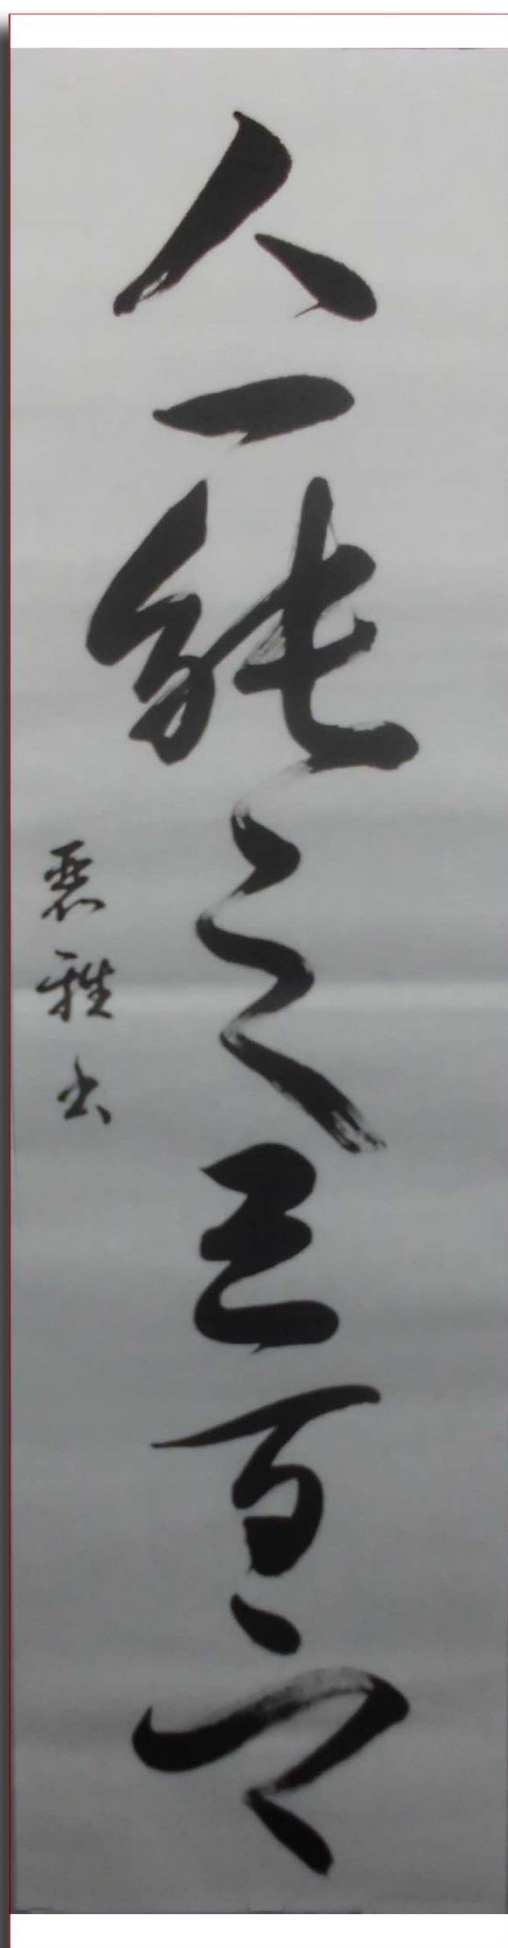 人一能之己百之
雅书